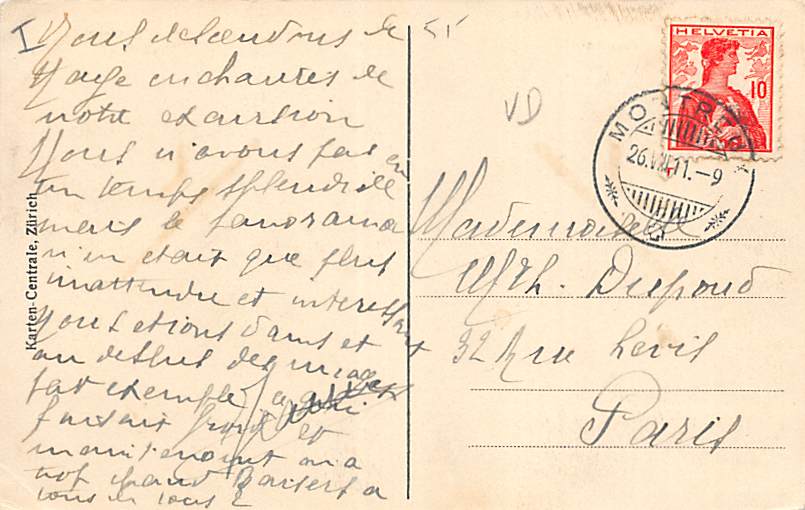 I
Nous descendons de
Naye enchantés de
notre excursion
Nous n'avons pas eu
un temps splendide
mais le panorama
n'en était que plus
inattendu et interessant
Nous etions dans et
au dessus des nuages
par exemple
faisait froid et
maintenant on a
trop chaud Baisers a
tous
Karten-Centrale, Zürich
VD
HELVETIA
10
MONTREUX
26.VII.11.-9
Mademoiselle
Mth. Dupond
32 Rue Levis
Paris